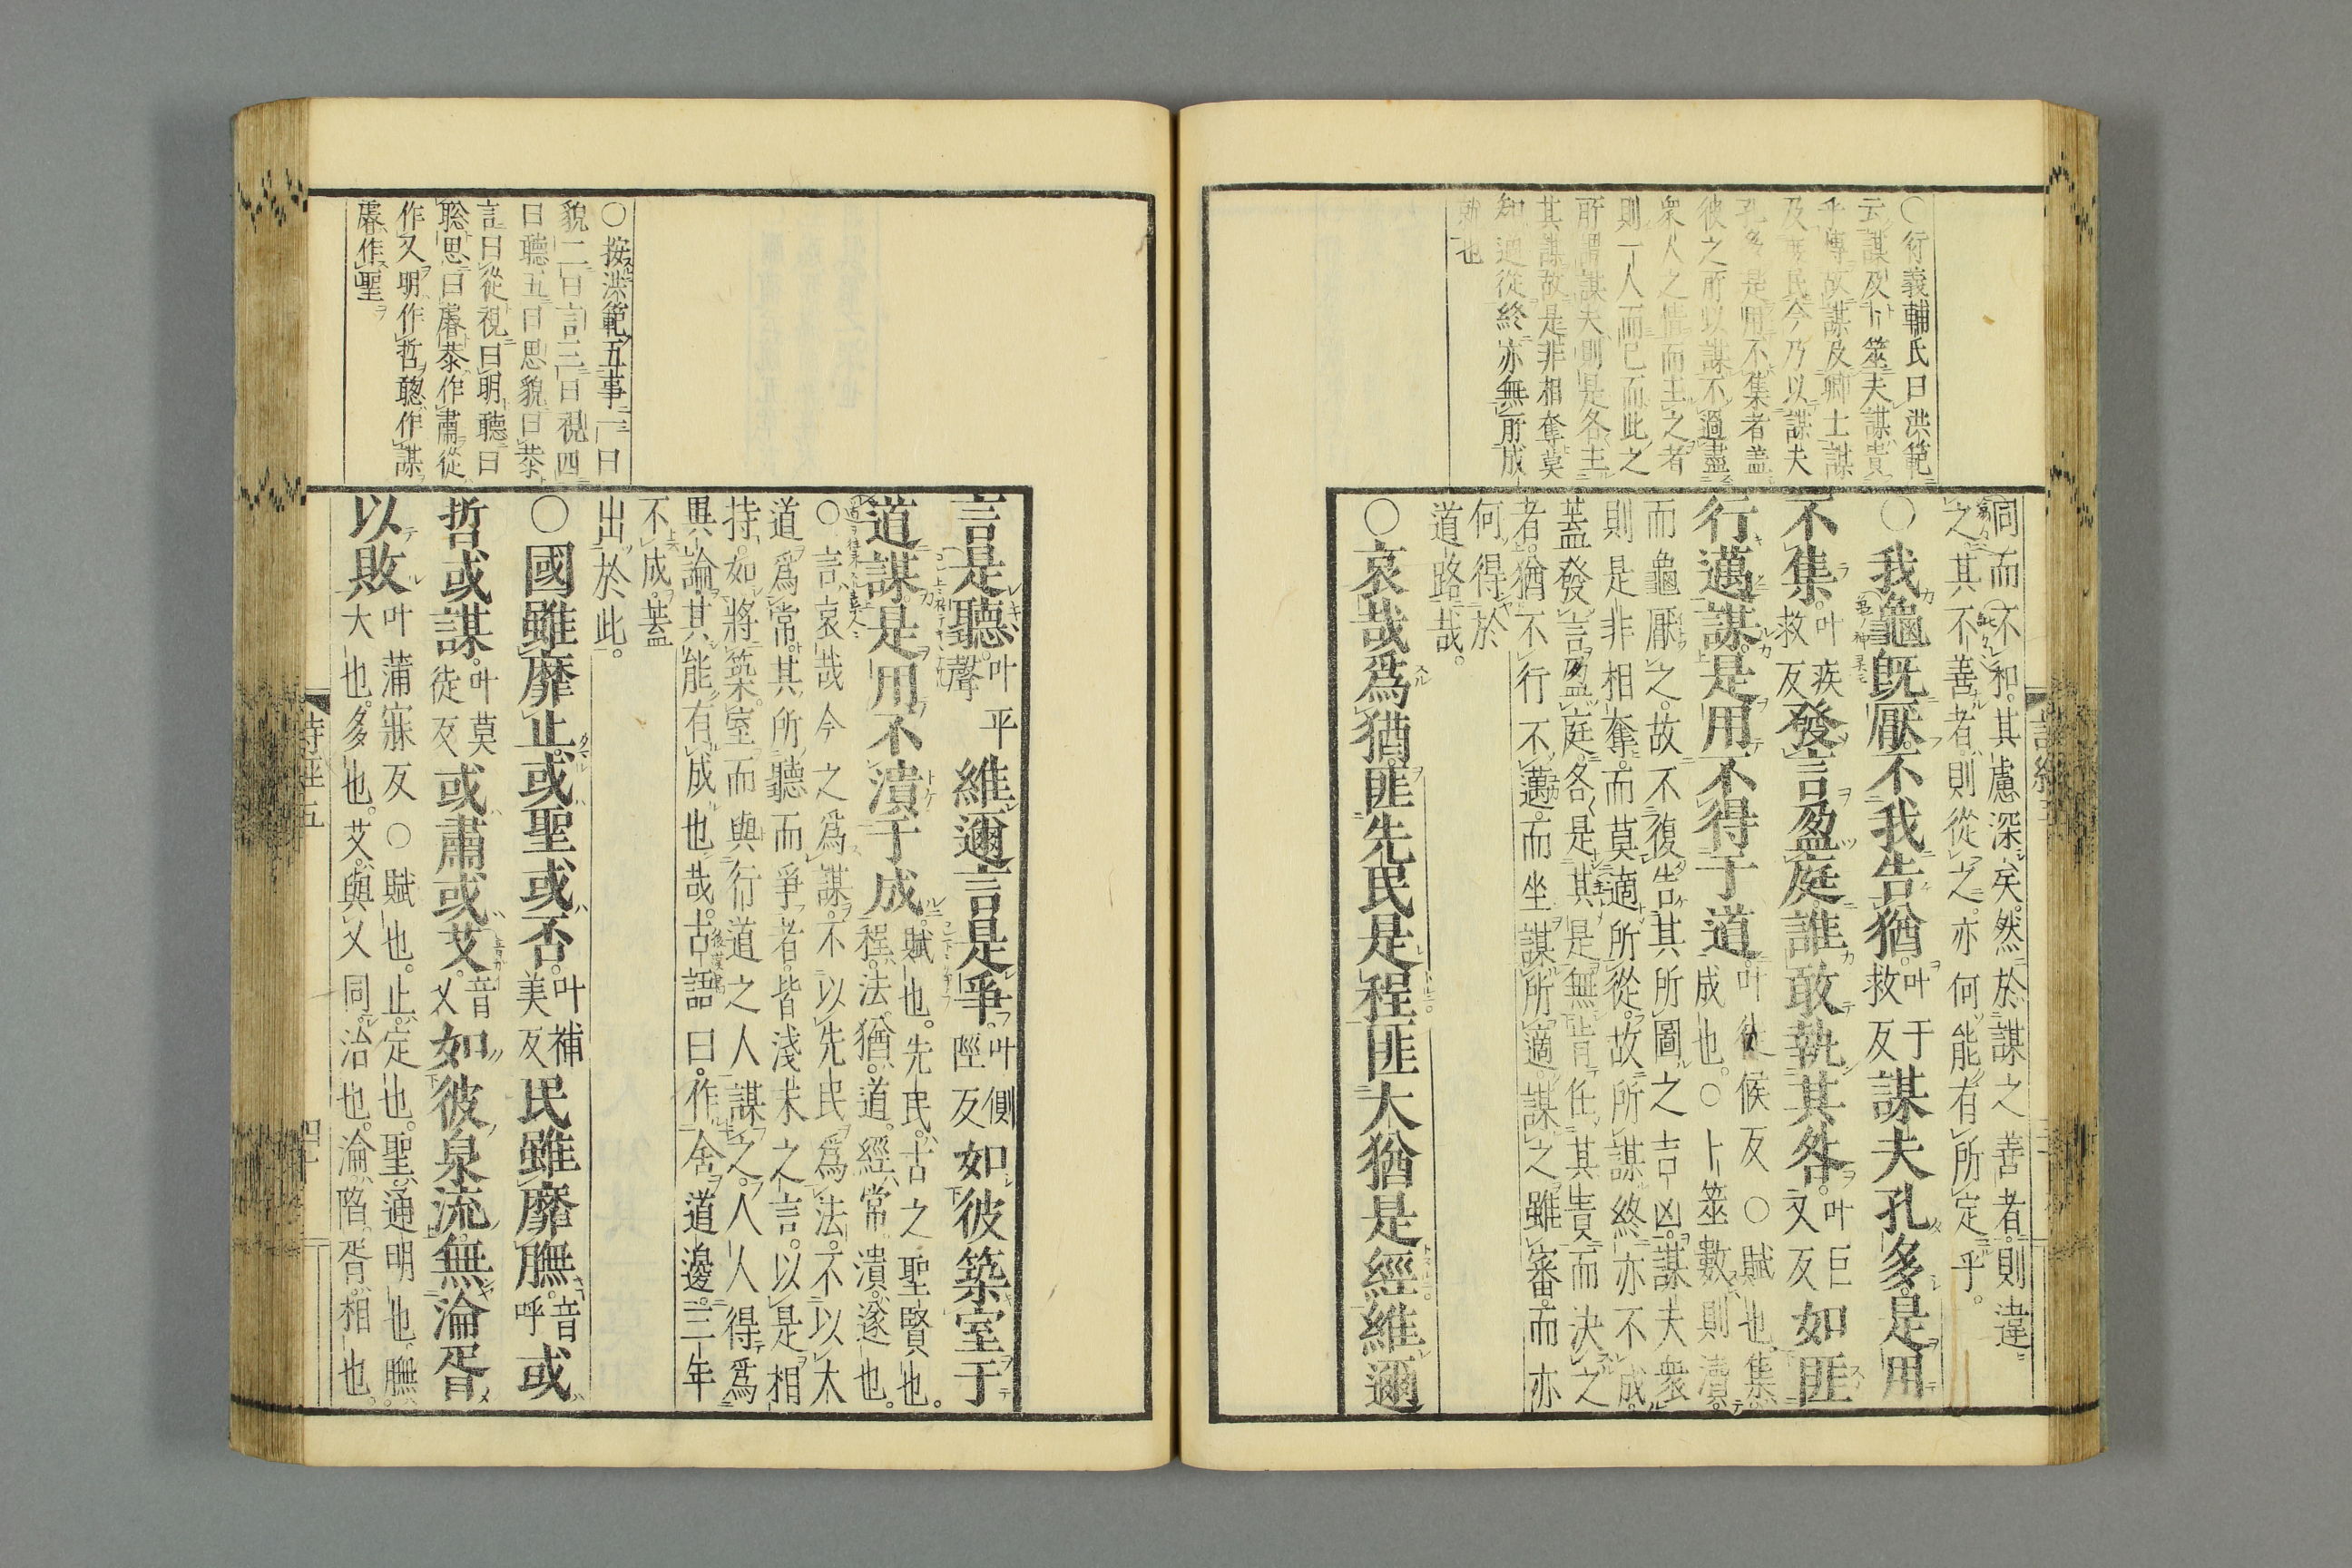 ○衍義輔氏曰洪範
云謀及卜筮夫謀貴
乎專故謀及卿士謀
及庶民今乃以謀夫
孔多是用不集者盖
彼之所以謀不過盡
衆人之情而主之者
則一人而已而此之
所謂謀夫則是各主
其謀故是非相奪莫
知適從終亦無所成
就也
同而不和。其慮深矣。然於謀之善者。則違
之。其不善者。則從之。亦何能有所定乎。
○我龜既厭。不我告猶。叶于救反謀夫孔多。是用
不集。叶疾救反發言盈庭。誰敢執其咎。叶巨又反如匪
行邁謀。是用不得于道。叶徒候反○賦也。集。成也。○卜筮數。則瀆。
而龜厭之。故不復告其所圖之吉凶。謀夫衆。
則是非相奪。而莫適所從。故所謀終亦不成。
蓋發言盈庭。各是其是。無肯任其責而決之
者。猶不行不邁。而坐謀所適。謀之雖審。而亦
何得於
道路哉。
○哀哉爲猶。匪先民是程。匪大猶是經。維邇
言是聽。叶平聲維邇言是爭。叶側陘反如彼築室于
道謀。是用不潰于成。賦也。先民。古之聖賢也。程。法。猶。道。經。常。潰。遂也。
○言哀哉今之爲謀。不以先民爲法。不以大
道爲常。其所聽而爭者。皆淺末之言。以是相
持。如將築室而與行道之人謀之。人人得爲
異論。其能有成也哉。古語曰。作舍道邊。三年
不成。蓋
出於此。
○國雖靡止。或聖或否。叶補美反民雖靡膴。音呼或
哲或謀。叶莫徒反或肅或艾。音乂如彼泉流。無淪胥
以敗。叶蒲寐反○賦也。止。定也。聖。通明也。膴。大也。多也。艾。與乂同。治也。淪。陷。胥。相也。
○按洪範五事一曰
貌二曰言三曰視四
曰聽五曰思貌曰恭
言曰從視曰明聽曰
聡思曰睿恭作肅從
作乂明作哲聰作謀
睿作聖